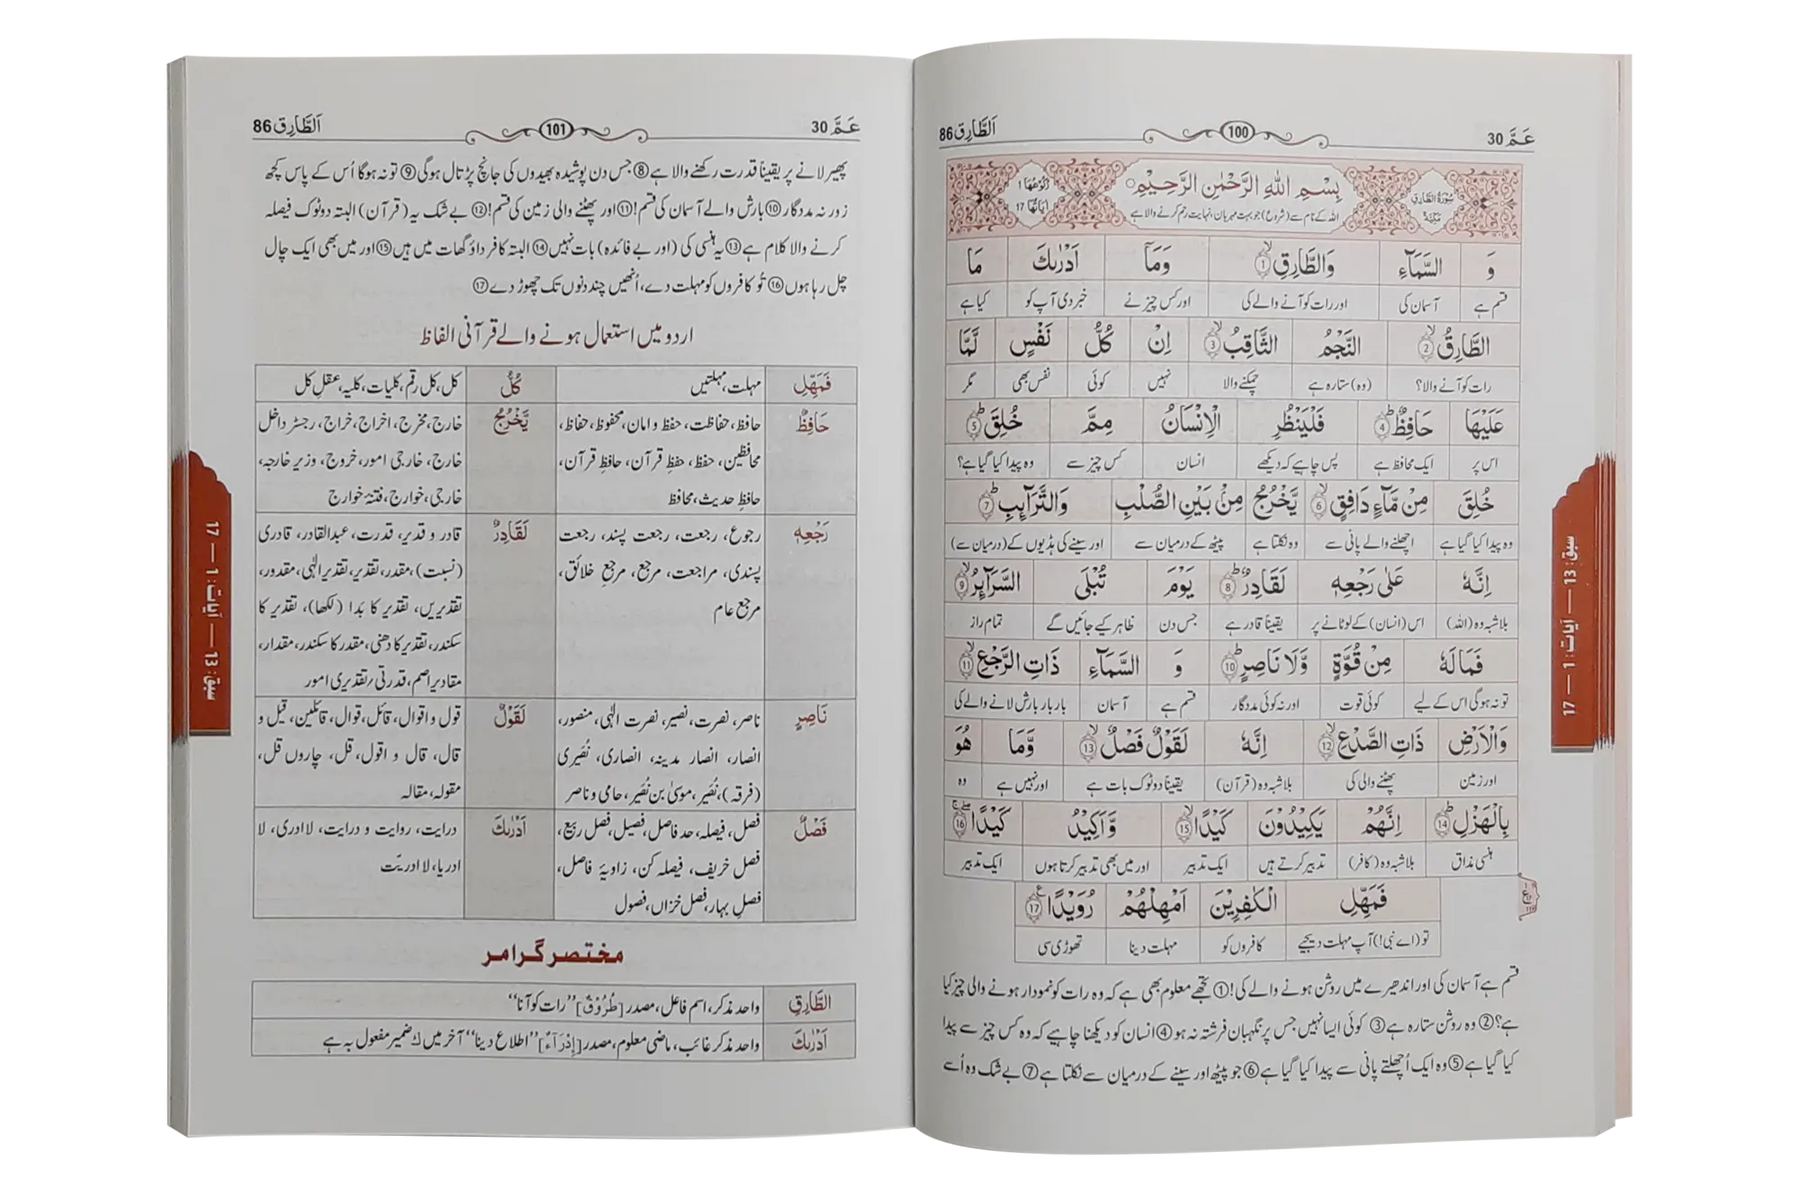 عَمَّ 30
100
اَلطَّارِق 86
سُوْرَةُ الطَّارِقِ مَكِّيَّةٌ
بِسْمِ اللّٰهِ الرَّحْمٰنِ الرَّحِيْمِ
اللہ کے نام سے (شروع) جو بہت مہربان، نہایت رحم کرنے والا ہے
رُكُوْعُهَا 1
اٰيَاتُهَا 17
وَ السَّمَآءِ وَالطَّارِقِ ① وَمَآ اَدْرٰىكَ مَا
قسم ہے آسمان کی اور رات کو آنے والے کی اور کس چیز نے خبر دی آپ کو کیا ہے
الطَّارِقُ ② النَّجْمُ الثَّاقِبُ ③ اِنْ كُلُّ نَفْسٍ لَّمَّا
رات کو آنے والا؟ (وہ) ستارہ ہے چمکنے والا نہیں کوئی نفس بھی مگر
عَلَيْهَا حَافِظٌ ④ فَلْيَنْظُرِ الْاِنْسَانُ مِمَّ خُلِقَ ⑤
اس پر ایک محافظ ہے پس چاہیے کہ دیکھے انسان کس چیز سے وہ پیدا کیا گیا ہے؟
خُلِقَ مِنْ مَّآءٍ دَافِقٍ ⑥ يَّخْرُجُ مِنْۢ بَيْنِ الصُّلْبِ وَالتَّرَآىِٕبِ ⑦
وہ پیدا کیا گیا ہے اچھلنے والے پانی سے وہ نکلتا ہے پیٹھ کے درمیان سے اور سینے کی ہڈیوں کے (درمیان سے)
اِنَّهٗ عَلٰى رَجْعِهٖ لَقَادِرٌ ⑧ يَوْمَ تُبْلَى السَّرَآىِٕرُ ⑨
بلاشبہ وہ (اللہ) اس (انسان) کے لوٹانے پر یقیناً قادر ہے جس دن ظاہر کیے جائیں گے تمام راز
فَمَا لَهٗ مِنْ قُوَّةٍ وَّلَا نَاصِرٍ ⑩ وَ السَّمَآءِ ذَاتِ الرَّجْعِ ⑪
تو نہ ہوگی اس کے لیے کوئی قوت اور نہ کوئی مددگار قسم ہے آسمان بار بار بارش لانے والے کی
وَالْاَرْضِ ذَاتِ الصَّدْعِ ⑫ اِنَّهٗ لَقَوْلٌ فَصْلٌ ⑬ وَّمَا هُوَ
اور زمین پھٹنے والی کی بلاشبہ وہ (قرآن) یقیناً دوٹوک بات ہے اور نہیں ہے وہ
بِالْهَزْلِ ⑭ اِنَّهُمْ يَكِيْدُوْنَ كَيْدًا ⑮ وَّاَكِيْدُ كَيْدًا ⑯
ہنسی مذاق بلاشبہ وہ (کافر) تدبیر کرتے ہیں ایک تدبیر اور میں بھی تدبیر کرتا ہوں ایک تدبیر
فَمَهِّلِ الْكٰفِرِيْنَ اَمْهِلْهُمْ رُوَيْدًا ⑰
تو (اے نبی!) آپ مہلت دیجیے کافروں کو مہلت دینا تھوڑی سی
قسم ہے آسمان کی اور اندھیرے میں روشن ہونے والے کی! ① تجھے معلوم بھی ہے کہ وہ رات کو نمودار ہونے والی چیز کیا
ہے؟ ② وہ روشن ستارہ ہے ③ کوئی ایسا نہیں جس پر نگہبان فرشتہ نہ ہو ④ انسان کو دیکھنا چاہیے کہ وہ کس چیز سے پیدا
کیا گیا ہے ⑤ وہ ایک اُچھلتے پانی سے پیدا کیا گیا ہے ⑥ جو پیٹھ اور سینے کے درمیان سے نکلتا ہے ⑦ بے شک وہ اُسے
سبق: 13 — آیات: 1 — 17
عَمَّ 30
101
اَلطَّارِق 86
پھیر لانے پر یقیناً قدرت رکھنے والا ہے ⑧ جس دن پوشیدہ بھیدوں کی جانچ پڑتال ہوگی ⑨ تو نہ ہوگا اُس کے پاس کچھ
زور نہ مددگار ⑩ بارش والے آسمان کی قسم! ⑪ اور پھٹنے والی زمین کی قسم! ⑫ بے شک یہ (قرآن) البتہ دوٹوک فیصلہ
کرنے والا کلام ہے ⑬ یہ ہنسی کی (اور بے فائدہ) بات نہیں ⑭ البتہ کافر داؤ گھات میں ہیں ⑮ اور میں بھی ایک چال
چل رہا ہوں ⑯ تُو کافروں کو مہلت دے، اُنھیں چند دنوں تک چھوڑ دے ⑰
اردو میں استعمال ہونے والے قرآنی الفاظ
فَمَهِّلِ مہلت، مہلتیں كُلُّ کل، کل رقم، کلیات، کلیہ، عقلِ کل
حَافِظٌ حافظ، حفاظت، حفظ و امان، محفوظ، حفاظ، يَّخْرُجُ خارج، مخرج، اخراج، خراج، رجسٹر داخل
محافظین، حفظ، حفظِ قرآن، حافظِ قرآن، خارج، خارجی امور، خروج، وزیرِ خارجہ،
حافظِ حدیث، محافظ خارجی، خوارج، فتنۂ خوارج
رَجْعِهٖ رجوع، رجعت، رجعت پسند، رجعت لَقَادِرٌ قادر و قدیر، قدرت، عبدالقادر، قادری
پسندی، مراجعت، مرجع، مرجعِ خلائق، (نسبت)، مقدر، تقدیر، تقدیرِ الٰہی، مقدور،
مرجع عام تقدیریں، تقدیر کا بَدا (لکھا)، تقدیر کا
سکندر، تقدیر کا دھنی، مقدر کا سکندر، مقدار،
مقادیر اصم، قدرتی/تقدیری امور
نَاصِرٍ ناصر، نصرت، نصیر، نصرت الٰہی، منصور، لَقَوْلٌ قول و اقوال، قائل، قوال، قائلین، قیل و
انصار، انصار مدینہ، انصاری، نُصَیری قال، قال و اقول، قل، چاروں قل،
(فرقہ)، نُصَیر، موسیٰ بن نُصَیر، حامی و ناصر مقولہ، مقالہ
فَصْلٌ فصل، فیصلہ، حد فاصل، فصیل، فصل ربیع، اَدْرٰىكَ درایت، روایت و درایت، لا ادری، لا
فصل خریف، فیصلہ کن، زاویۂ فاصل، ادریا، لا ادریّت
فصلِ بہار، فصل خزاں، فصول
مختصر گرامر
الطَّارِقِ واحد مذکر، اسم فاعل، مصدر [طُرُوْقٌ] ”رات کو آنا“
اَدْرٰىكَ واحد مذکر غائب، ماضی معلوم، مصدر [اِدْرَآءٌ] ”اطلاع دینا“ آخر میں كَ ضمیر مفعول بہ ہے
سبق: 13 — آیات: 1 — 17